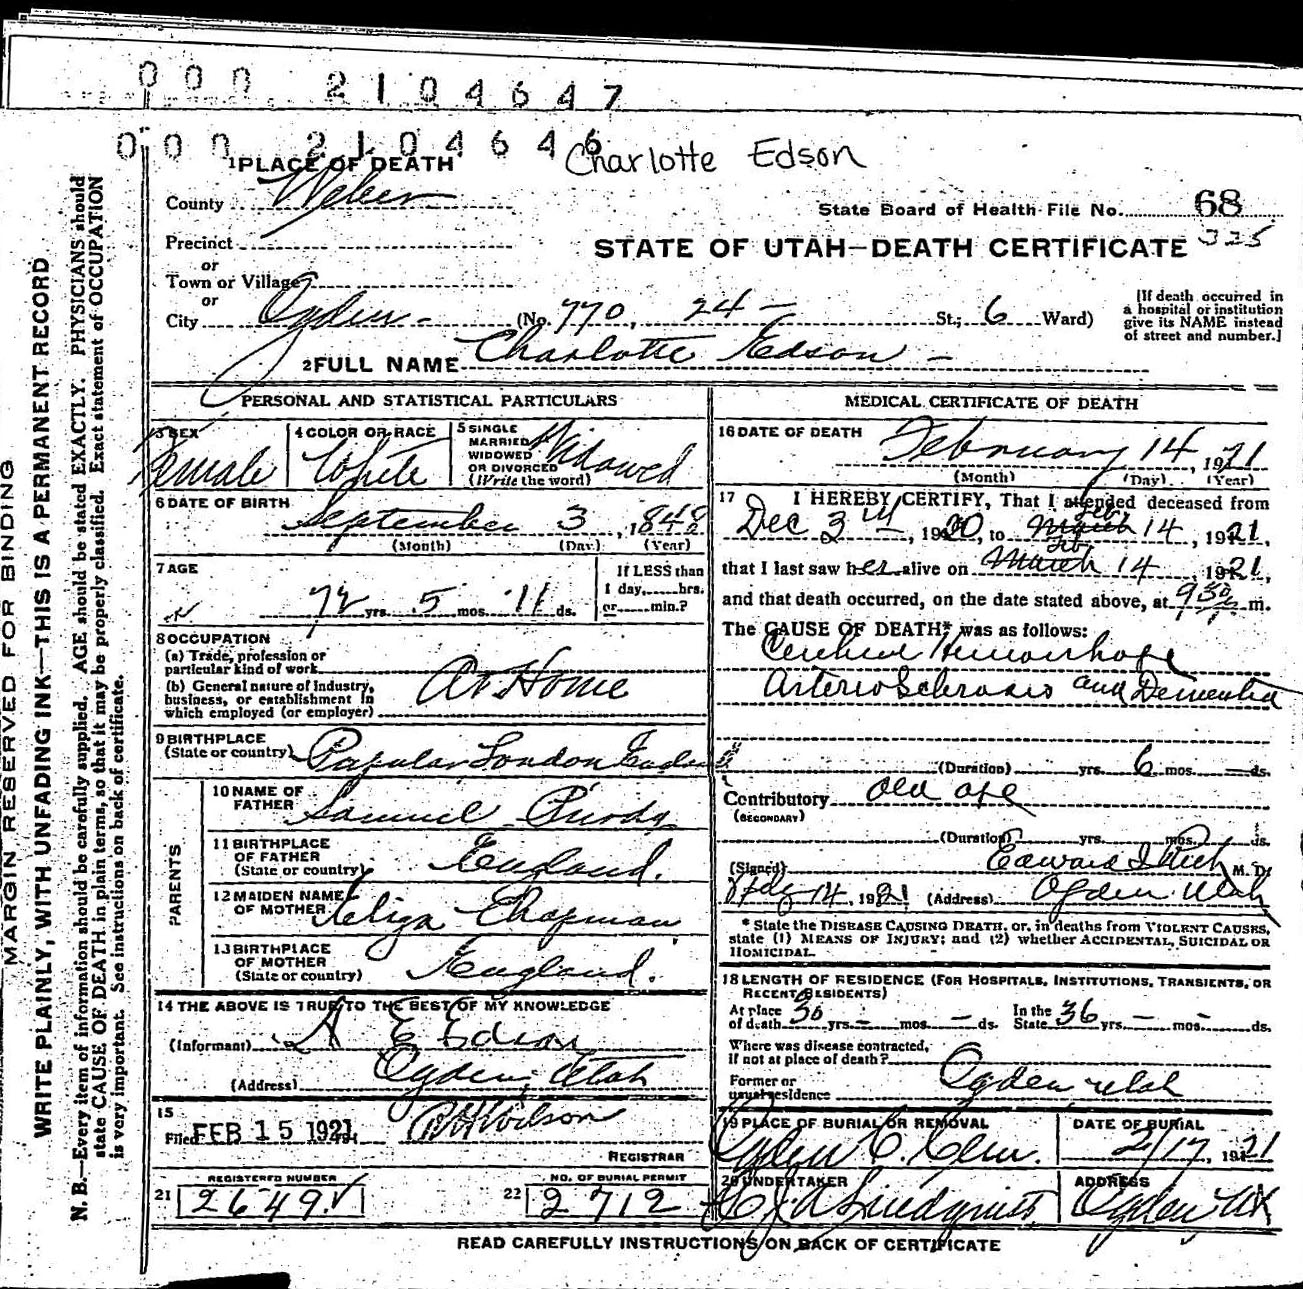 000 2104647
000 2104646
Charlotte Edson
1 PLACE OF DEATH
County Weber
State Board of Health File No. 68
325
Precinct
STATE OF UTAH—DEATH CERTIFICATE
or
Town or Village
or
City Ogden (No. 770, 24 St.; 6 Ward)
[If death occurred in
a hospital or institution
give its NAME instead
of street and number.]
2 FULL NAME Charlotte Edson
PERSONAL AND STATISTICAL PARTICULARS
3 SEX
Female
4 COLOR OR RACE
White
5 SINGLE
MARRIED
WIDOWED
OR DIVORCED
(Write the word)
Widowed
6 DATE OF BIRTH
September 3, 1848
(Month) (Day) (Year)
7 AGE
72 yrs. 5 mos. 11 ds.
If LESS than
1 day, hrs.
or min.?
8 OCCUPATION
(a) Trade, profession or
particular kind of work
(b) General nature of industry,
business, or establishment in
which employed (or employer)
At Home
9 BIRTHPLACE
(State or country) Popular London England
PARENTS
10 NAME OF
FATHER Samuel
11 BIRTHPLACE
OF FATHER
(State or country) England.
12 MAIDEN NAME
OF MOTHER Eliza Chapman
13 BIRTHPLACE
OF MOTHER
(State or country) England.
14 THE ABOVE IS TRUE TO THE BEST OF MY KNOWLEDGE
(Informant) A E Edson
(Address) Ogden, Utah
15
Filed FEB 15 1921 Wilson
REGISTRAR
REGISTERED NUMBER
21 2649
NO. OF BURIAL PERMIT
22 2712
MEDICAL CERTIFICATE OF DEATH
16 DATE OF DEATH
February 14, 1921
(Month) (Day) (Year)
17 I HEREBY CERTIFY, That I attended deceased from
Dec 3rd, 1920, to March Feb 14, 1921,
that I last saw her alive on March Feb 14 1921,
and that death occurred, on the date stated above, at 930 m.
The CAUSE OF DEATH* was as follows:
Hemorrhage
Arterio Sclerosis and Dementia
(Duration) yrs. 6 mos. — ds.
Contributory Old age
(SECONDARY)
(Duration) yrs. mos. ds.
(Signed) Edward I Rich M. D.
Feb 14, 1921 (Address) Ogden Utah
* State the DISEASE CAUSING DEATH, or, in deaths from VIOLENT CAUSES,
state (1) MEANS OF INJURY; and (2) whether ACCIDENTAL, SUICIDAL OR
HOMICIDAL.
18 LENGTH OF RESIDENCE (FOR HOSPITALS, INSTITUTIONS, TRANSIENTS, OR
RECENT RESIDENTS)
At place
of death 30 yrs. — mos. — ds.
In the
State 36 yrs. — mos. — ds.
Where was disease contracted,
if not at place of death?
Former or
usual residence Ogden Utah
19 PLACE OF BURIAL OR REMOVAL
Ogden C. Cem.
DATE OF BURIAL
2/17, 1921
20 UNDERTAKER
Lindquist
ADDRESS
Ogden Ut
READ CAREFULLY INSTRUCTIONS ON BACK OF CERTIFICATE
MARGIN RESERVED FOR BINDING
WRITE PLAINLY, WITH UNFADING INK—THIS IS A PERMANENT RECORD
N. B.—Every item of information should be carefully supplied. AGE should be stated EXACTLY. PHYSICIANS should
state CAUSE OF DEATH in plain terms, so that it may be properly classified. Exact statement of OCCUPATION
is very important. See instructions on back of certificate.